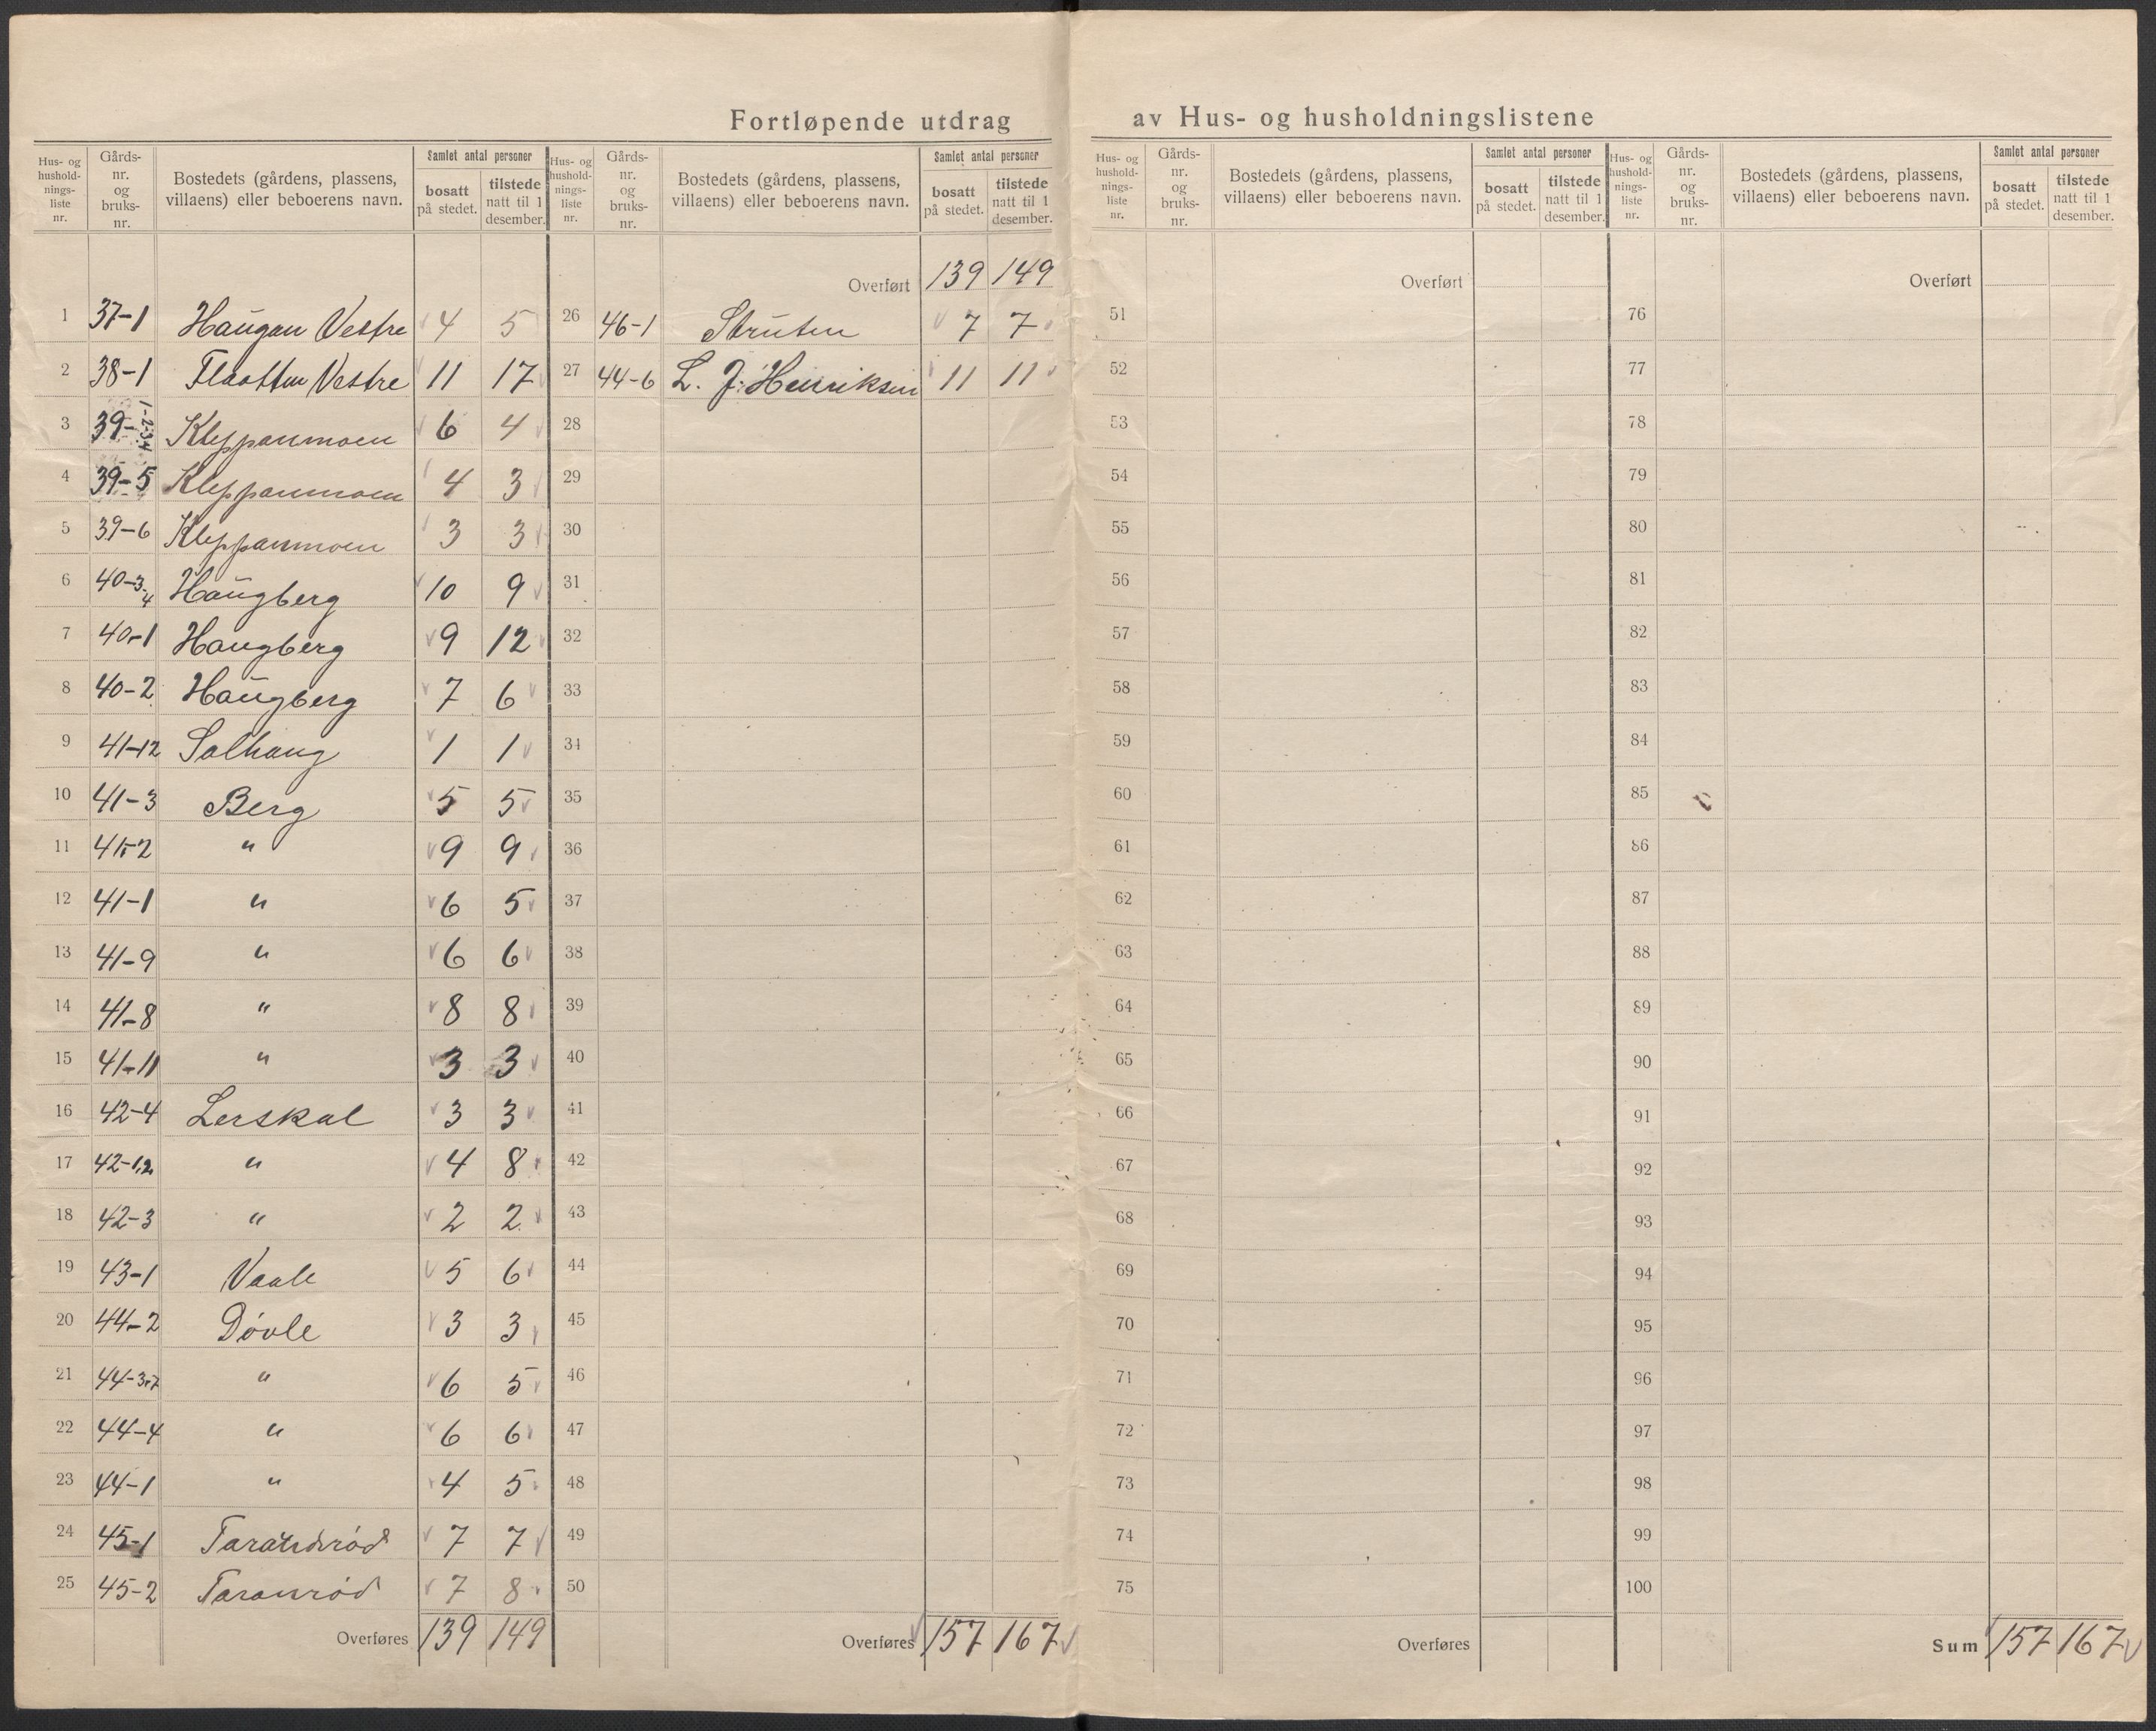 Fortløpende utdrag av Hus- og husholdningslistene
Hus- og husholdnings-liste nr. Gårds-nr. og bruks-nr. Bostedets (gårdens, plassens, villaens) eller beboerens navn. Samlet antal personer bosatt på stedet. tilstede natt til 1 desember.
1 37-1 Haugan Vestre 4 5
2 38-1 Flaatten Vestre 11 17
3 39-1-2-3-4 Kleppanmoen 6 4
4 39-5 Kleppanmoen 4 3
5 39-6 Kleppanmoen 3 3
6 40-3-4 Haugberg 10 9
7 40-1 Haugberg 9 12
8 40-2 Haugberg 7 6
9 41-12 Solhaug 1 1
10 41-3 Berg 5 5
11 41-2 " 9 9
12 41-1 " 6 5
13 41-9 " 6 6
14 41-8 " 8 8
15 41-11 " 3 3
16 42-4 Lerskal 3 3
17 42-1,2 " 4 8
18 42-3 " 2 2
19 43-1 Vaale 5 6
20 44-2 Døvle 3 3
21 44-3,7 " 6 5
22 44-4 " 6 6
23 44-1 " 4 5
24 45-1 7 7
25 45-2 Taranrød 7 8
Overføres 139 149
Hus- og husholdnings-liste nr. Gårds-nr. og bruks-nr. Bostedets (gårdens, plassens, villaens) eller beboerens navn. Samlet antal personer bosatt på stedet. tilstede natt til 1 desember.
Overført 139 149
26 46-1 Struten 7 7
27 44-6 L. J. Henriksen 11 11
28
29
30
31
32
33
34
35
36
37
38
39
40
41
42
43
44
45
46
47
48
49
50
Overføres 157 167
Hus- og husholdnings-liste nr. Gårds-nr. og bruks-nr. Bostedets (gårdens, plassens, villaens) eller beboerens navn. Samlet antal personer bosatt på stedet. tilstede natt til 1 desember.
Overført
51
52
53
54
55
56
57
58
59
60
61
62
63
64
65
66
67
68
69
70
71
72
73
74
75
Overføres
Hus- og husholdnings-liste nr. Gårds-nr. og bruks-nr. Bostedets (gårdens, plassens, villaens) eller beboerens navn. Samlet antal personer bosatt på stedet. tilstede natt til 1 desember.
Overført
76
77
78
79
80
81
82
83
84
85
86
87
88
89
90
91
92
93
94
95
96
97
98
99
100
Sum 157 167